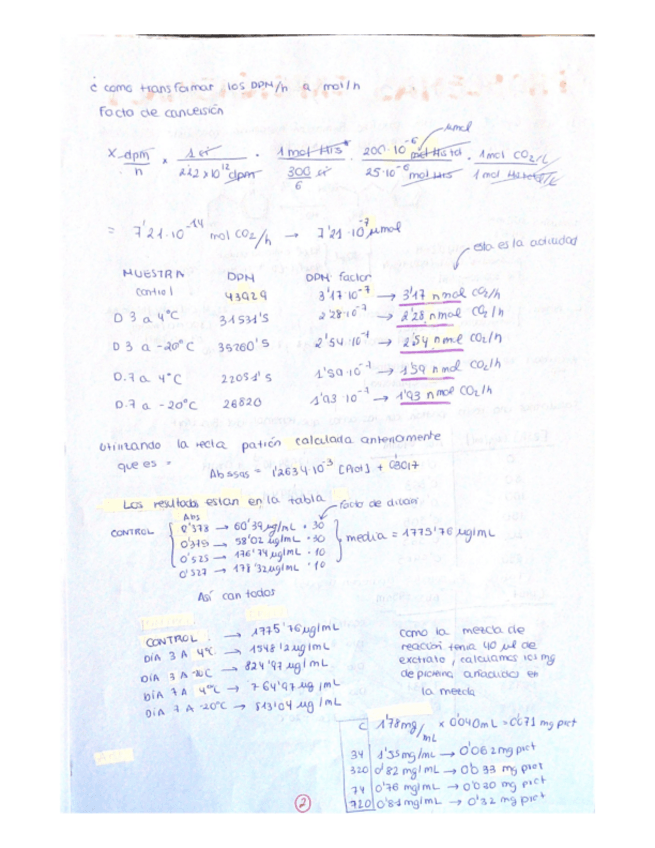 ¿ como transformar los DPM/h a mol/h
Facto de conversión
X dpm/h × 1 ci / 2'22×10^12 dpm · 1 mol His* / 300/6 ci · 200·10^-6 mol His td / 25·10^-6 mol His · 1 mol CO2/h / 1 mol
µmol
= 7'21·10^-14 mol CO2/h → 7'21·10^-7 µmol
esta es la actividad
MUESTRA DPM DPM factor
Control 43929 3'17·10^-7 → 3'17 nmol CO2/h
D 3 a 4°C 31531'5 2'28·10^-7 → 2'28 nmol CO2/h
D 3 a -20°C 35260'5 2'54·10^-7 → 2'54 nmol CO2/h
D.7 a 4°C 22051'5 1'59·10^-7 → 1'59 nmol CO2/h
D.7 a -20°C 26820 1'93·10^-7 → 1'93 nmol CO2/h
Utilizando la recta patrón calculada anteriormente
que es =
Abs595 = 1'2634·10^-3 [Prot] + 0'3017
Los resultados estan en la tabla
Abs
facto de diluin
CONTROL
0'378 → 60'39 µg/mL · 30
0'375 → 58'02 µg/mL · 30
0'525 → 176'74 µg/mL · 10
0'527 → 178'32 µg/mL · 10
media = 1775'76 µg/mL
Así con todos
CONTROL → 1775'76 µg/mL
DÍA 3 A 4°C → 1548'2 µg/mL
DÍA 3 A -20C → 824'97 µg/mL
DÍA 7 A 4°C → 764'97 µg/mL
DÍA 7 A -20°C → 813'04 µg/mL
como la mezcla de
reacción tenia 40 µl de
extrato, calculamos los mg
de proteina añadido en
la mezcla
C 1'78 mg/mL × 0'040mL = 0'071 mg prot
34 1'55 mg/mL → 0'062 mg prot
320 0'82 mg/mL → 0'033 mg prot
74 0'76 mg/mL → 0'030 mg prot
720 0'81 mg/mL → 0'32 mg prot
2